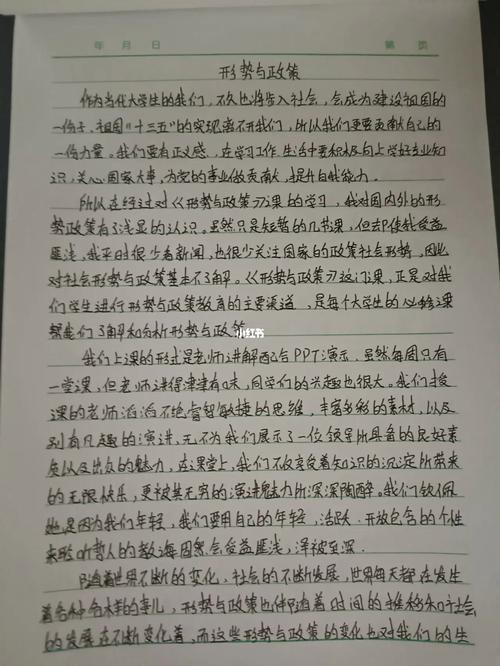 年 月 日 第 页
形势与政策
作为当代大学生的我们，不久也将步入社会，会成为建设祖国的
一份子、祖国“十三五”的实现离不开我们，所以我们更要贡献自己的
一份力量。我们要有正义感，在学习工作生活中要积极向上学好专业知
识，关心国家大事，为党的事业做贡献，提升自我能力．
所以在经过对《形势与政策》课的学习，我对国内外的形
势政策有了浅显的认识。虽然只是短暂的几节课，但去使我受益
匪浅，我平时很少看新闻，也很少关注国家的政策社会形势，因此
对社会形势与政策基本不了解。《形势与政策》这门课，正是对我
们学生进行形势与政策教育的主要渠道，是每个大学生的必修课
帮我们了解和分析形势与政策
小红书
我们上课的形式是老师讲解配与PPT演示．虽然每周只有
一堂课，但老师讲得津津有味，同学们的兴趣也很大。我们授
课的老师滔滔不绝睿智敏捷的思维，丰富多彩的素材，以及
别有风趣的演讲，无不为我们展示了一位领导所具备的良好素
质以及出众的魅力，在课堂上，我们不仅享受着知识的沉淀所带来
的无限快乐，更被其无穷的演讲魅力所深深陶醉。我们钦佩
她是因为我们年轻，我们要用自己的年轻，活跃．开放包含的个性
来聆听哲人的教诲固然会受益匪浅，泽被至深．
随着世界不断的变化，社会的不断发展，世界每天都在发生
着各种各样的事儿，形势与政策也伴随着时间的推移和社会
的发展在不断变化着，而这些形势与政策的变化也对我们的生